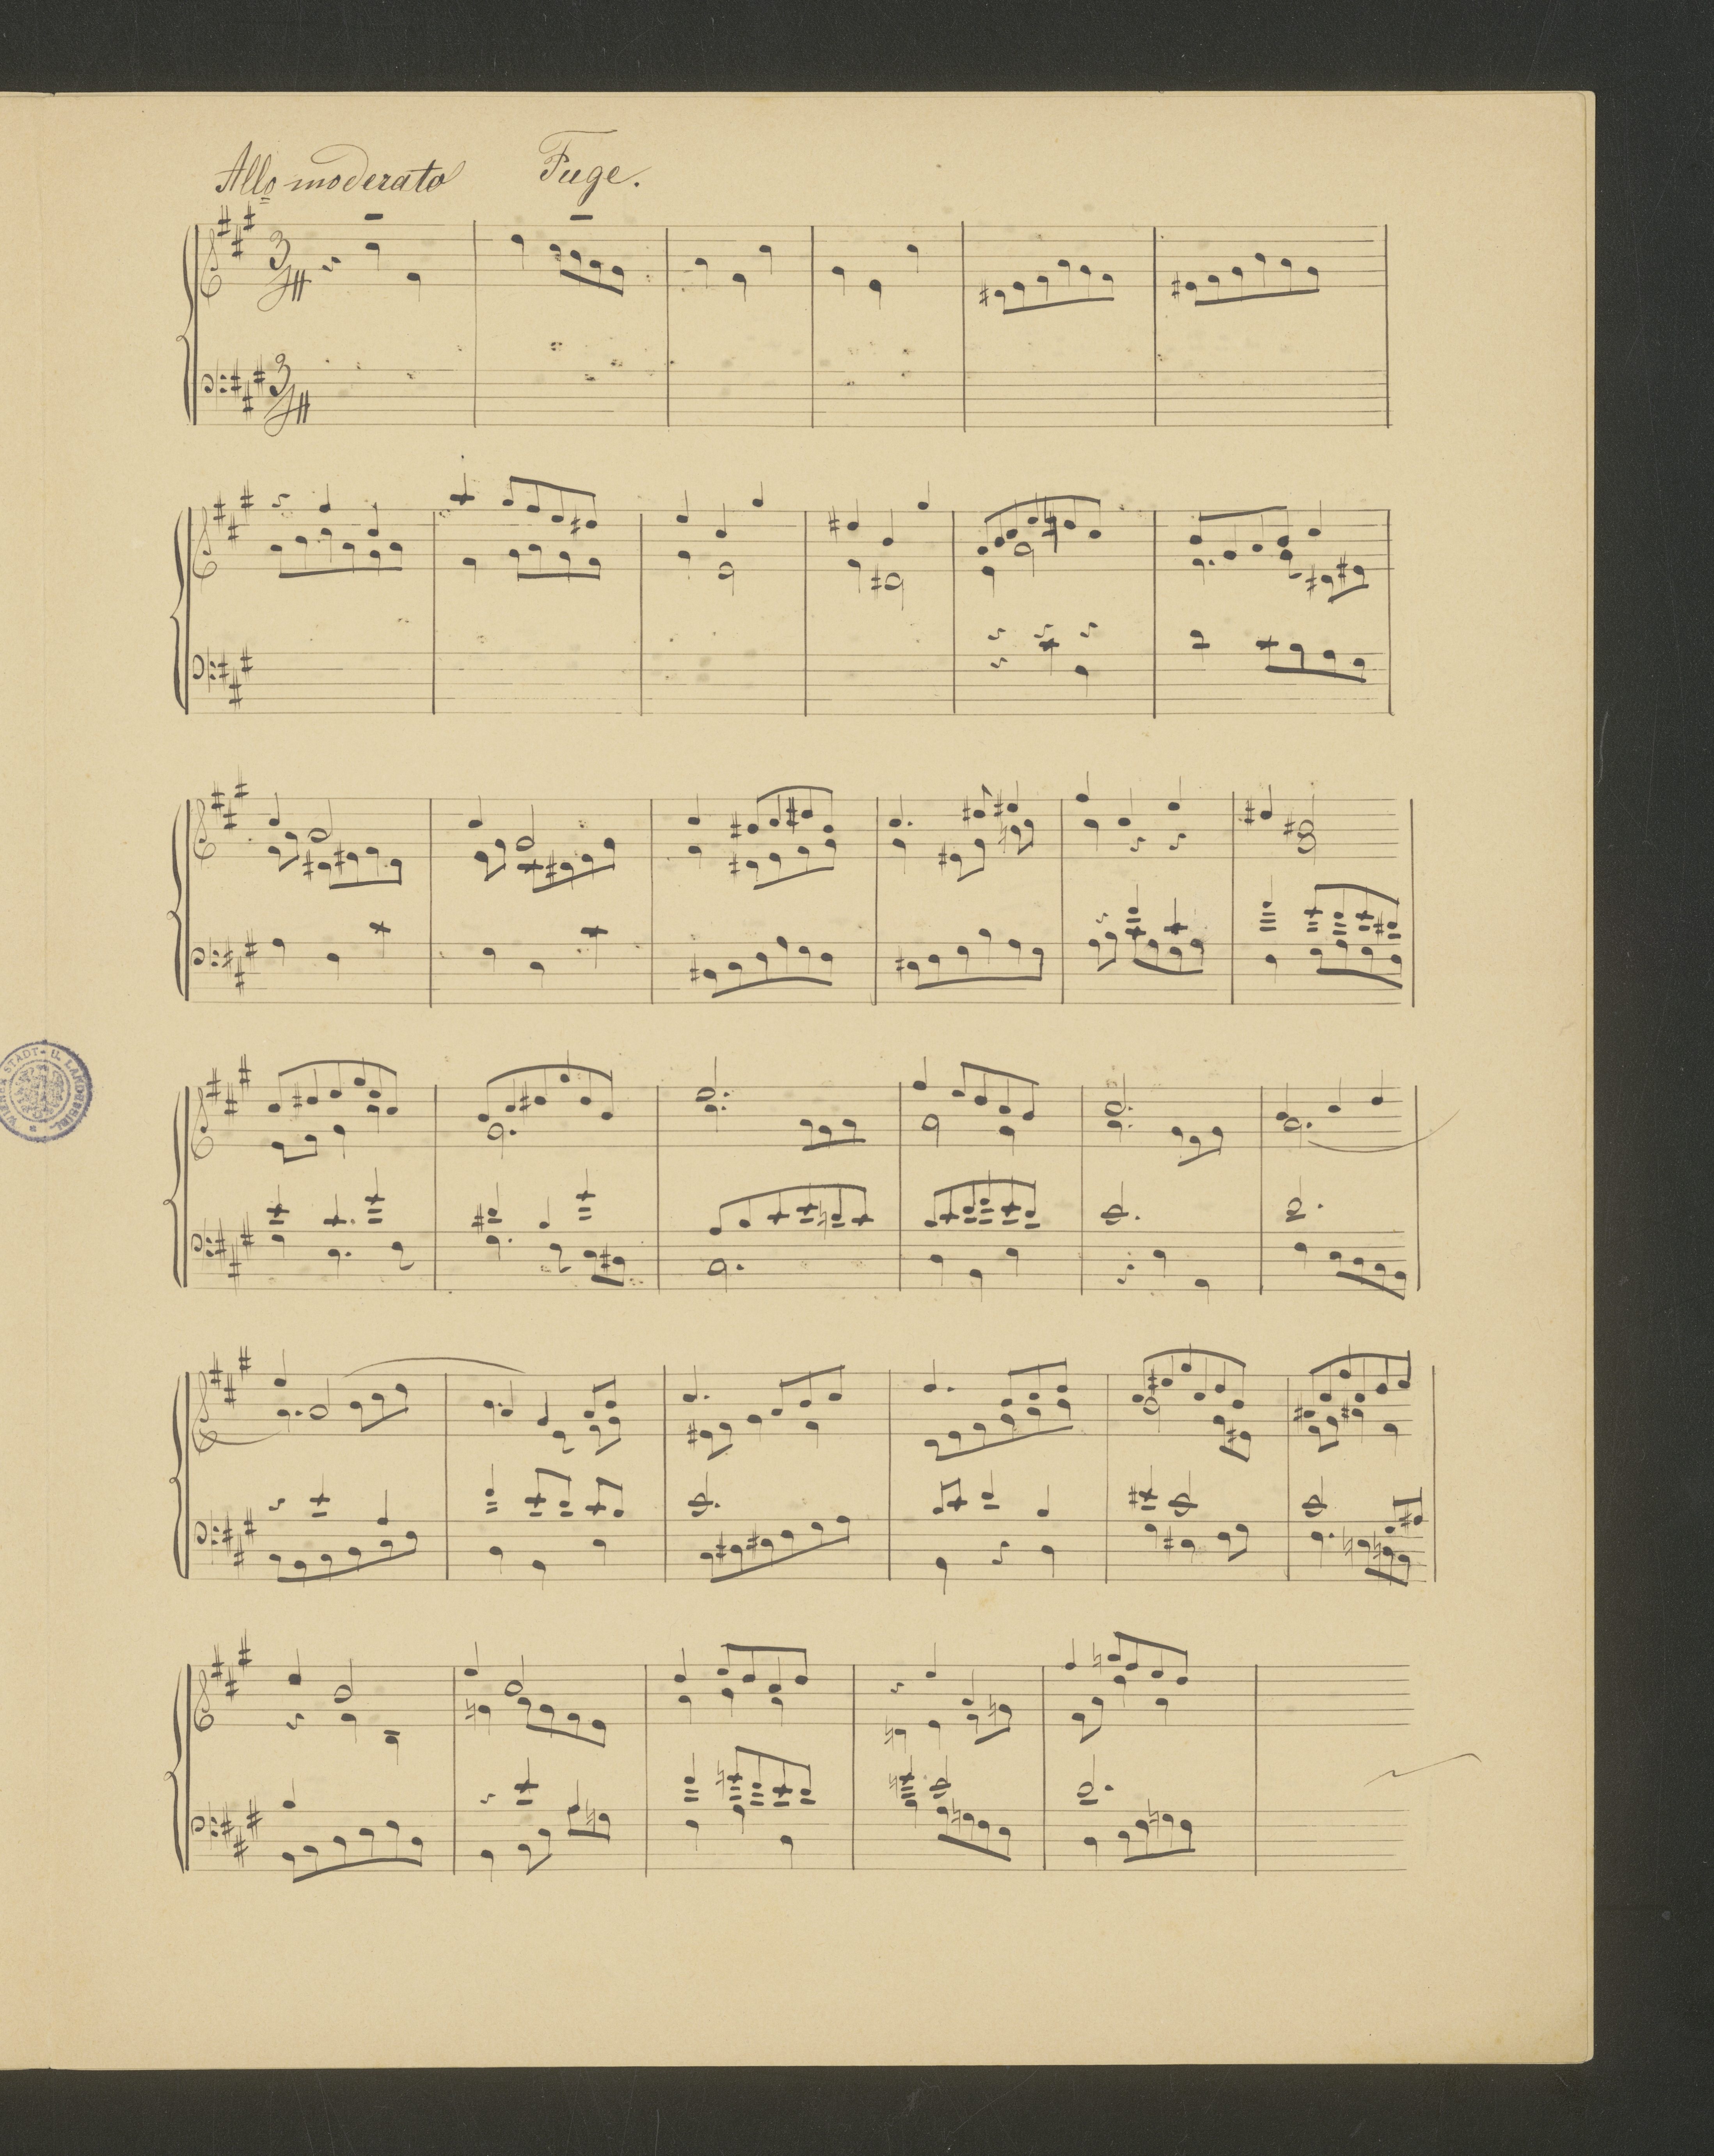 Allo moderato Fuge.
3/4
3/4
STADT- U. LANDESBIBL.